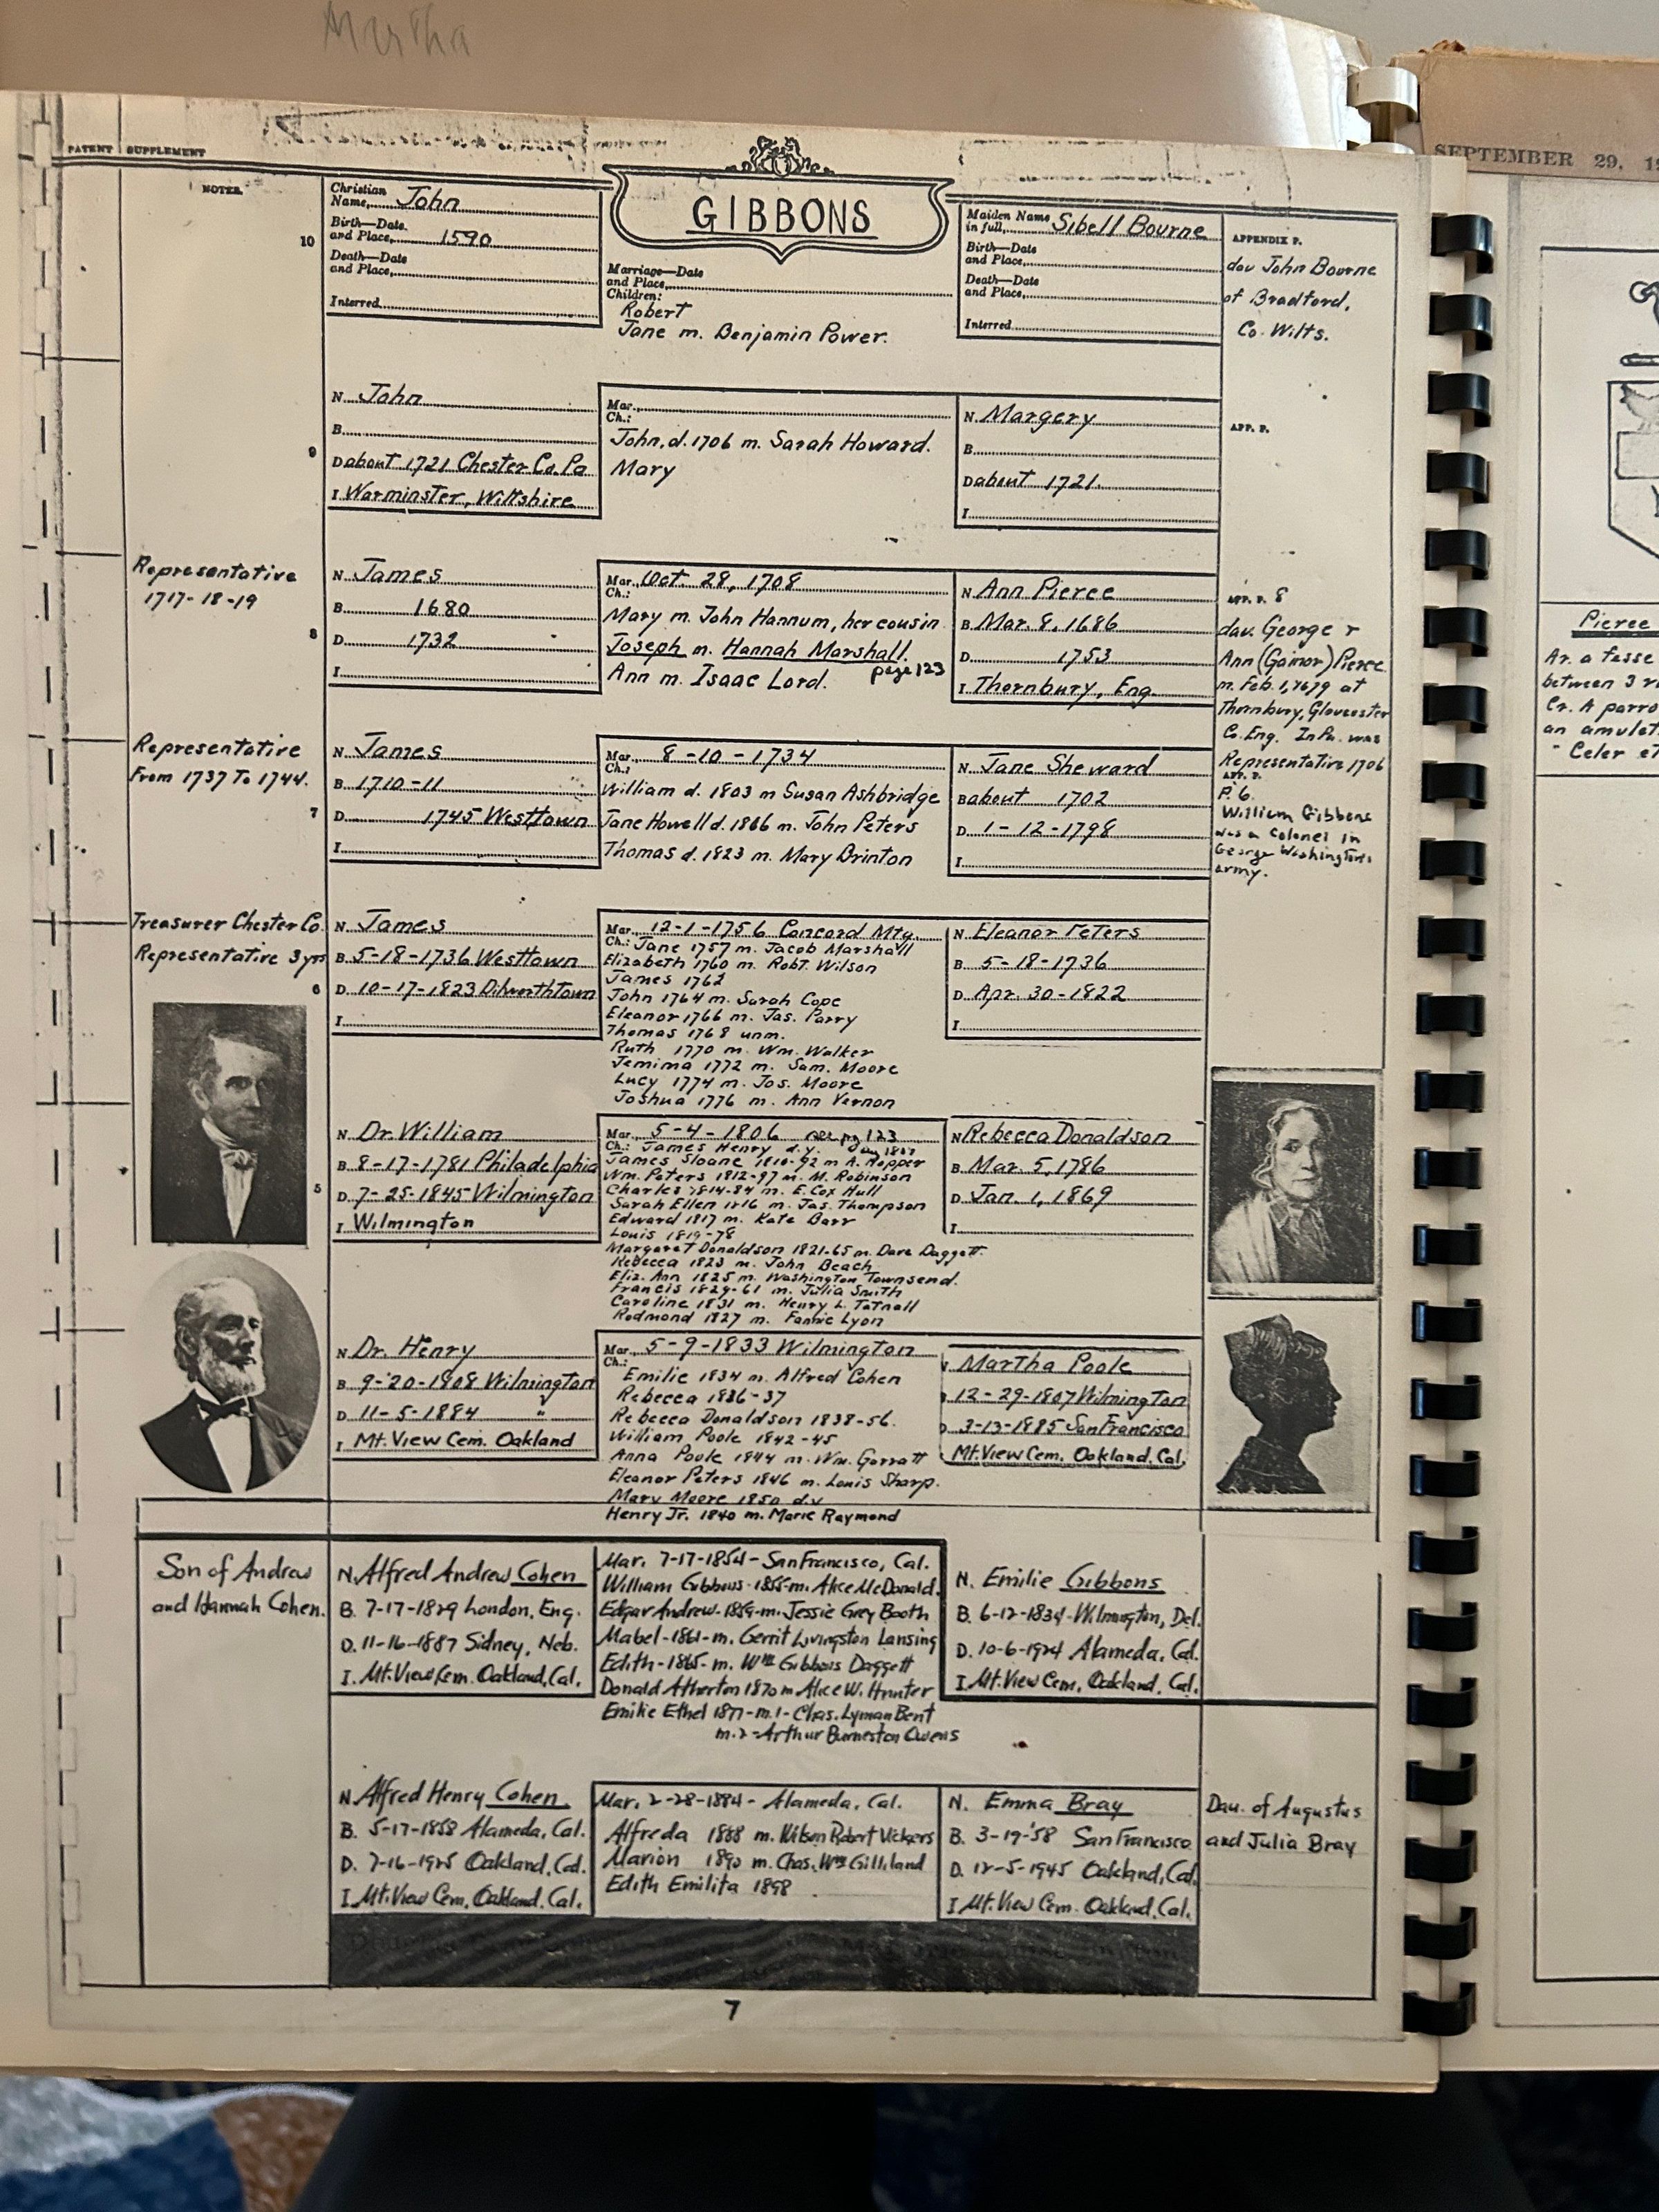 Martha
SEPTEMBER 29, 19
PATENT SUPPLEMENT
NOTES
GIBBONS
10
Christian
Name, John
Birth—Date
and Place, 1590
Death—Date
and Place,
Interred
Marriage—Date
and Place,
Children:
Robert
Jane m. Benjamin Power.
Maiden Name
in full, Sibell Bourne
Birth—Date
and Place,
Death—Date
and Place,
Interred
APPENDIX P.
dau John Bourne
of Bradford,
Co. Wilts.
9
N. John
B.
D about 1721 Chester Co. Pa
I Warminster, Wiltshire
Mar.
Ch.:
John, d. 1706 m. Sarah Howard.
Mary
N. Margery
B.
D about 1721.
I.
APP. P.
Representative
1717-18-19
8
N. James
B. 1680
D. 1732
I.
Mar. Oct. 28, 1708
Ch.:
Mary m. John Hannum, her cousin
Joseph m. Hannah Marshall.
page 123
Ann m. Isaac Lord.
N. Ann Pierce
B. Mar. 8, 1686
D. 1753
I Thornbury, Eng.
APP. P. 8
dau. George &
Ann (Gainor) Pierce
m. Feb. 1, 1679 at
Thornbury, Gloucester
Co. Eng. In Pa. was
Representative 1706
Representative
From 1737 To 1744.
7
N. James
B. 1710-11
D. 1745 Westtown
I.
Mar. 8-10-1734
Ch.:
William d. 1803 m Susan Ashbridge
Jane Howell d. 1806 m. John Peters
Thomas d. 1823 m. Mary Brinton
N. Jane Sheward
B about 1702
D. 1-12-1798
I.
APP. P.
P. 6.
William Gibbons
was a Colonel in
George Washingtons
army.
Treasurer Chester Co.
Representative 3 yrs
6
N. James
B. 5-18-1736 Westtown
D. 10-17-1823 Dilworthtown
I.
Mar. 12-1-1756 Concord Mtg.
Ch.: Jane 1757 m. Jacob Marshall
Elizabeth 1760 m. Robt. Wilson
James 1762
John 1764 m. Sarah Cope
Eleanor 1766 m. Jas. Parry
Thomas 1768 unm.
Ruth 1770 m. Wm. Walker
Jemima 1772 m. Sam. Moore
Lucy 1774 m. Jos. Moore
Joshua 1776 m. Ann Vernon
N. Eleanor Peters
B. 5-18-1736
D. Apr. 30-1822
I.
5
N. Dr. William
B. 8-17-1781 Philadelphia
D. 7-25-1845 Wilmington
I. Wilmington
Mar. 5-4-1806 see pg 123
Ch.: James Henry d.y.
James Sloane 1810-92 m A. Hopper
Wm. Peters 1812-97 m. M. Robinson
Charles 1814-84 m. E. Cox Hull
Sarah Ellen 1816 m. Jas. Thompson
Edward 1817 m. Kate Barr
Louis 1819-78
Margaret Donaldson 1821-65 m. Dave Daggett.
Rebecca 1823 m. John Beach
Eliz. Ann 1825 m. Washington Townsend.
Francis 1829-61 m. Julia Smith
Caroline 1831 m. Henry L. Tatnall
Rodmond 1827 m. Fannie Lyon
N Rebecca Donaldson
B. Mar. 5, 1786
D. Jan. 1, 1869
I.
N. Dr. Henry
B. 9-20-1808 Wilmington
D. 11-5-1884 "
I Mt. View Cem. Oakland
Mar. 5-9-1833 Wilmington
Ch.:
Emilie 1834 m. Alfred Cohen
Rebecca 1836-37
Rebecca Donaldson 1838-56.
William Poole 1842-45
Anna Poole 1844 m. Wm. Garratt
Eleanor Peters 1846 m. Louis Sharp.
Mary Moore 1850 d.y
Henry Jr. 1840 m. Marie Raymond
Martha Poole
12-29-1807 Wilmington
3-13-1885 San Francisco
Mt. View Cem. Oakland, Cal.
Son of Andrew
and Hannah Cohen.
N. Alfred Andrew Cohen
B. 7-17-1829 London, Eng.
D. 11-16-1887 Sidney, Neb.
I. Mt. View Cem. Oakland, Cal.
Mar. 7-17-1854 - San Francisco, Cal.
William Gibbons - 1855 - m. Alice McDonald.
Edgar Andrew - 1859 - m. Jessie Grey Booth
Mabel - 1861 - m. Gerrit Livingston Lansing
Edith - 1865 - m. Wm Gibbons Daggett
Donald Atherton 1870 m Alice W. Hunter
Emilie Ethel 1877 - m. 1 - Chas. Lyman Bent
m. 2 - Arthur Burneston Owens
N. Emilie Gibbons
B. 6-12-1834 - Wilmington, Del.
D. 10-6-1924 Alameda, Cal.
I. Mt. View Cem. Oakland, Cal.
N. Alfred Henry Cohen
B. 5-17-1858 Alameda, Cal.
D. 7-16-1925 Oakland, Cal.
I. Mt. View Cem. Oakland, Cal.
Mar. 2-28-1884 - Alameda, Cal.
Alfreda 1888 m. Wilson Robert Vickers
Marion 1890 m. Chas. Wm Gilliland
Edith Emilita 1898
N. Emma Bray
B. 3-19-'58 San Francisco
D. 12-5-1945 Oakland, Cal.
I Mt. View Cem. Oakland, Cal.
Dau. of Augustus
and Julia Bray
7
Pierce
Ar. a fesse
between 3
Cr. A parro
an amulet
" Celer et